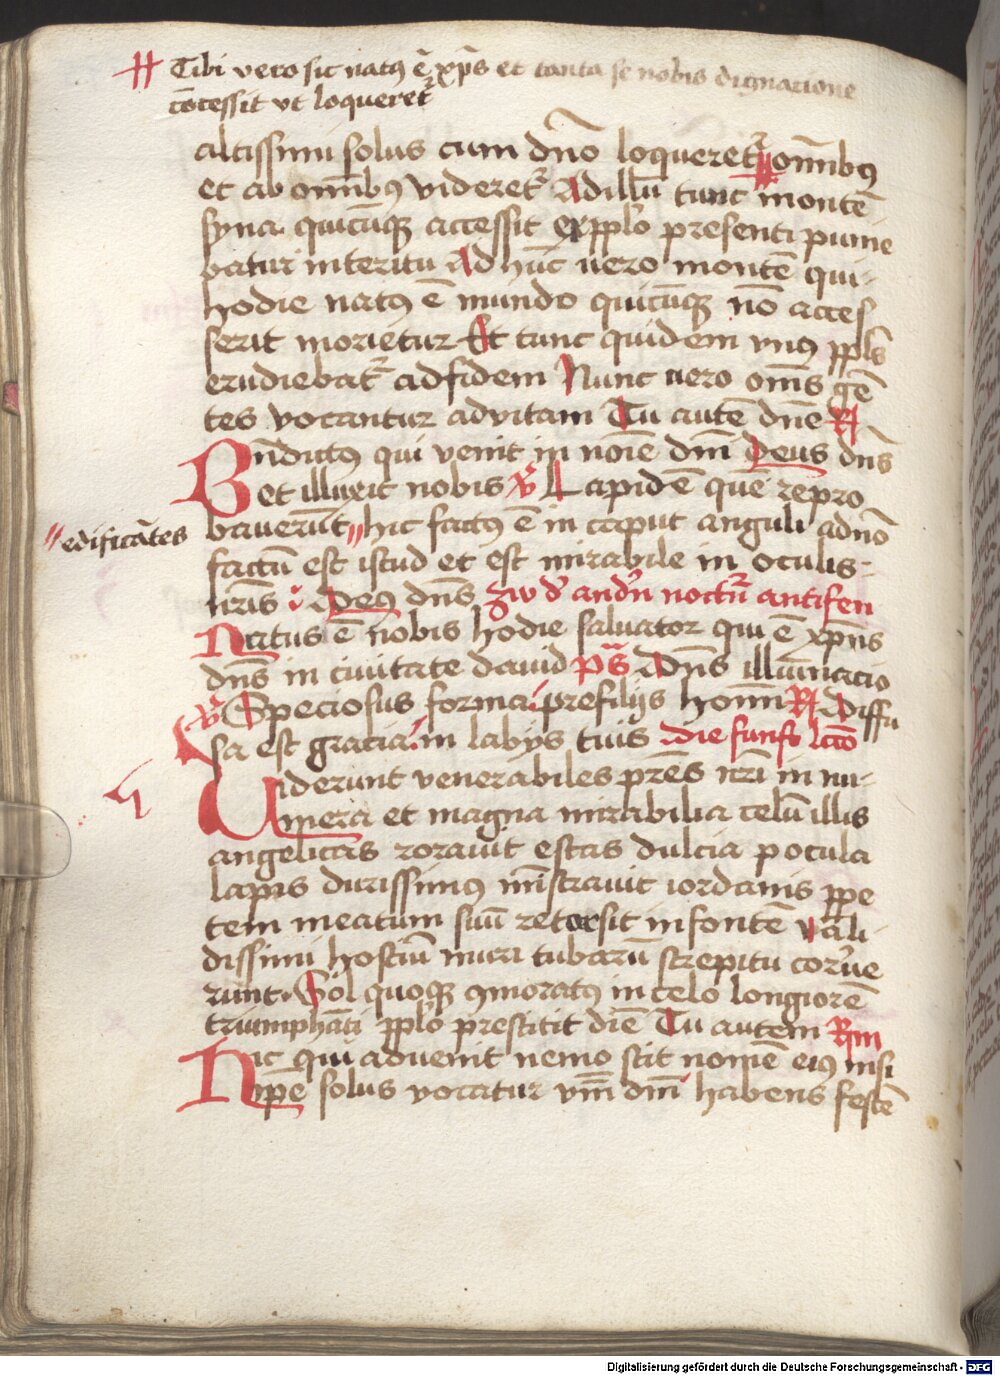 Tibi vero sic natꝯ ē xp̄s et tanta se nobis dignatione
cōcessit vt loqueret᷑
altissimi solus cum dn̄o loqueret᷑ om̄ibꝯ
et ab om̄ibꝯ videret᷑ Ad illū tunc montē
syna quicūqꝫ accessit ex pp̄lo presenti punie
batur interitu Ad hūc uero montē qui
hodie natꝯ ē mundo quicūqꝫ nō acces
serit morietur Et tunc quidem vnꝯ pp̄ls
erudiebat᷑ ad fidem Nunc uero om̄s gē
tes vocantur ad vitam Tu autē dn̄e R
Bn̄dictꝯ qui venit in noīe dn̄i Deus dn̄s
et illuxit nobis v̄ Lapidē quē repro
bauerūt hic factꝯ ē in caput anguli a dn̄o
edificātes
factū est istud et est mirabile in oculis
nr̄is : Deꝯ dn̄s zw d᷑ andn̄ noctn̄ antifen
Natus ē nobis hodie saluator qui ē xp̄us
dn̄s in ciuitate dauid ps̄ Dn̄s illūinacio
v̄ Speciosus forma pre filijs homī R Diffu
sa est gracia in labijs tuis die funft lc̄io
Uiderunt venerabiles pr̄es nr̄i in nu
mera et magna mirabilia celū illis
angelicas rorauit escas dulcia pocula
lapis durissimꝯ mīstrauit iordanis ppe
tem meatum suū retorsit in fontē vali
dissimi hostiū muri tubarū strepitu corrue
runt. Sol quoqꝫ ꝯmoratꝯ in celo longiorē
triumphāti pp̄lo prestitit diē Tu autem Rm
Hic qui aduenit nemo scit nomē eiꝯ nisi
ip̄e solus vocatur vm̄ dm̄ habens festē
Digitalisierung gefördert durch die Deutsche Forschungsgemeinschaft - DFG